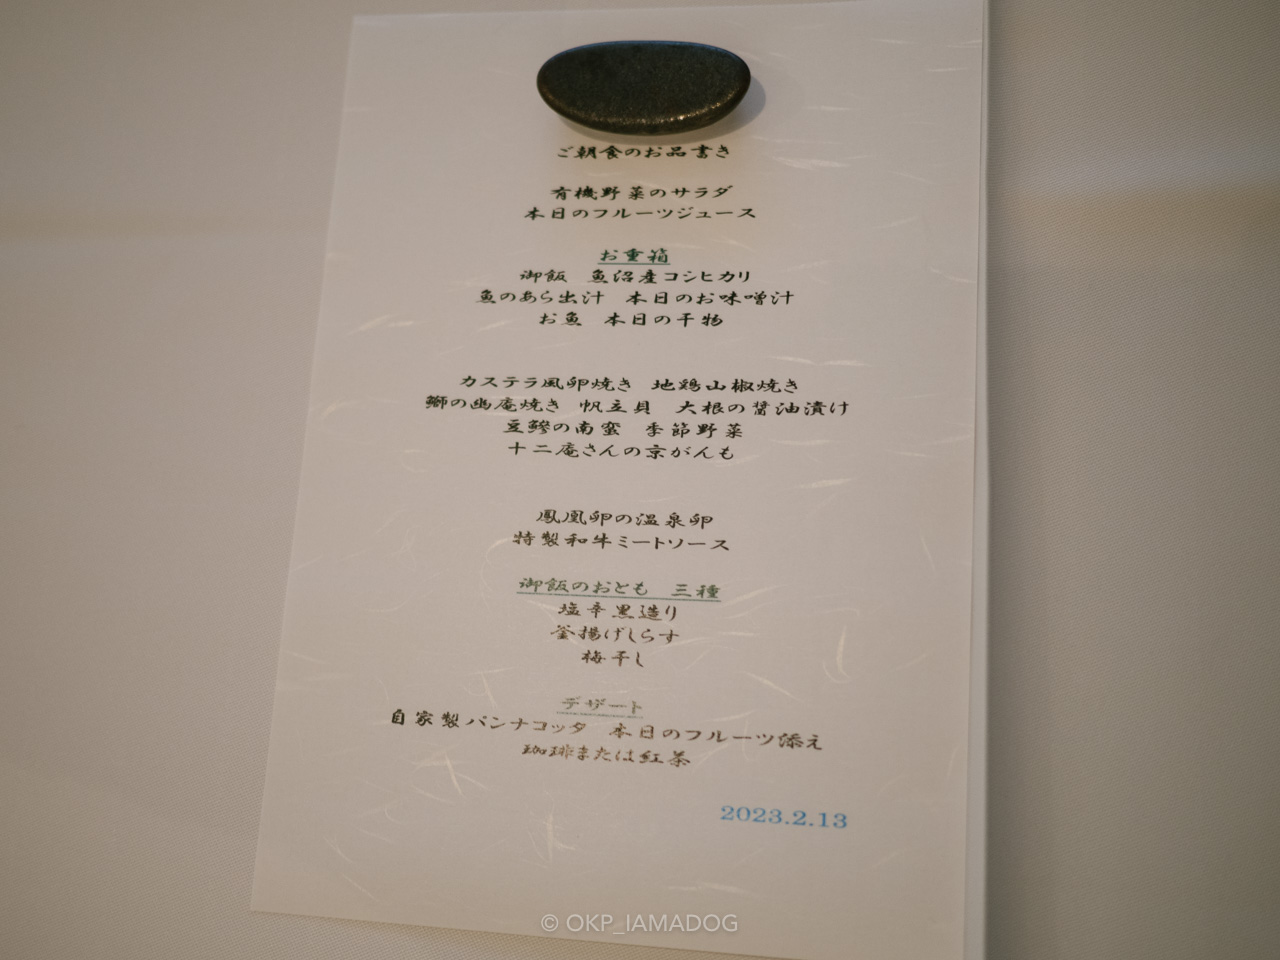 ご朝食のお品書き
有機野菜のサラダ
本日のフルーツジュース
お重箱
御飯　魚沼産コシヒカリ
魚のあら出汁　本日のお味噌汁
お魚　本日の干物
カステラ風卵焼き　地鶏山椒焼き
鰤の幽庵焼き　帆立貝　大根の醤油漬け
豆鯵の南蛮　季節野菜
十二庵さんの京がんも
鳳凰卵の温泉卵
特製和牛ミートソース
御飯のおとも　三種
塩辛黒造り
釜揚げしらす
梅干し
デザート
自家製パンナコッタ　本日のフルーツ添え
珈琲または紅茶
2023.2.13
© OKP_IAMADOG